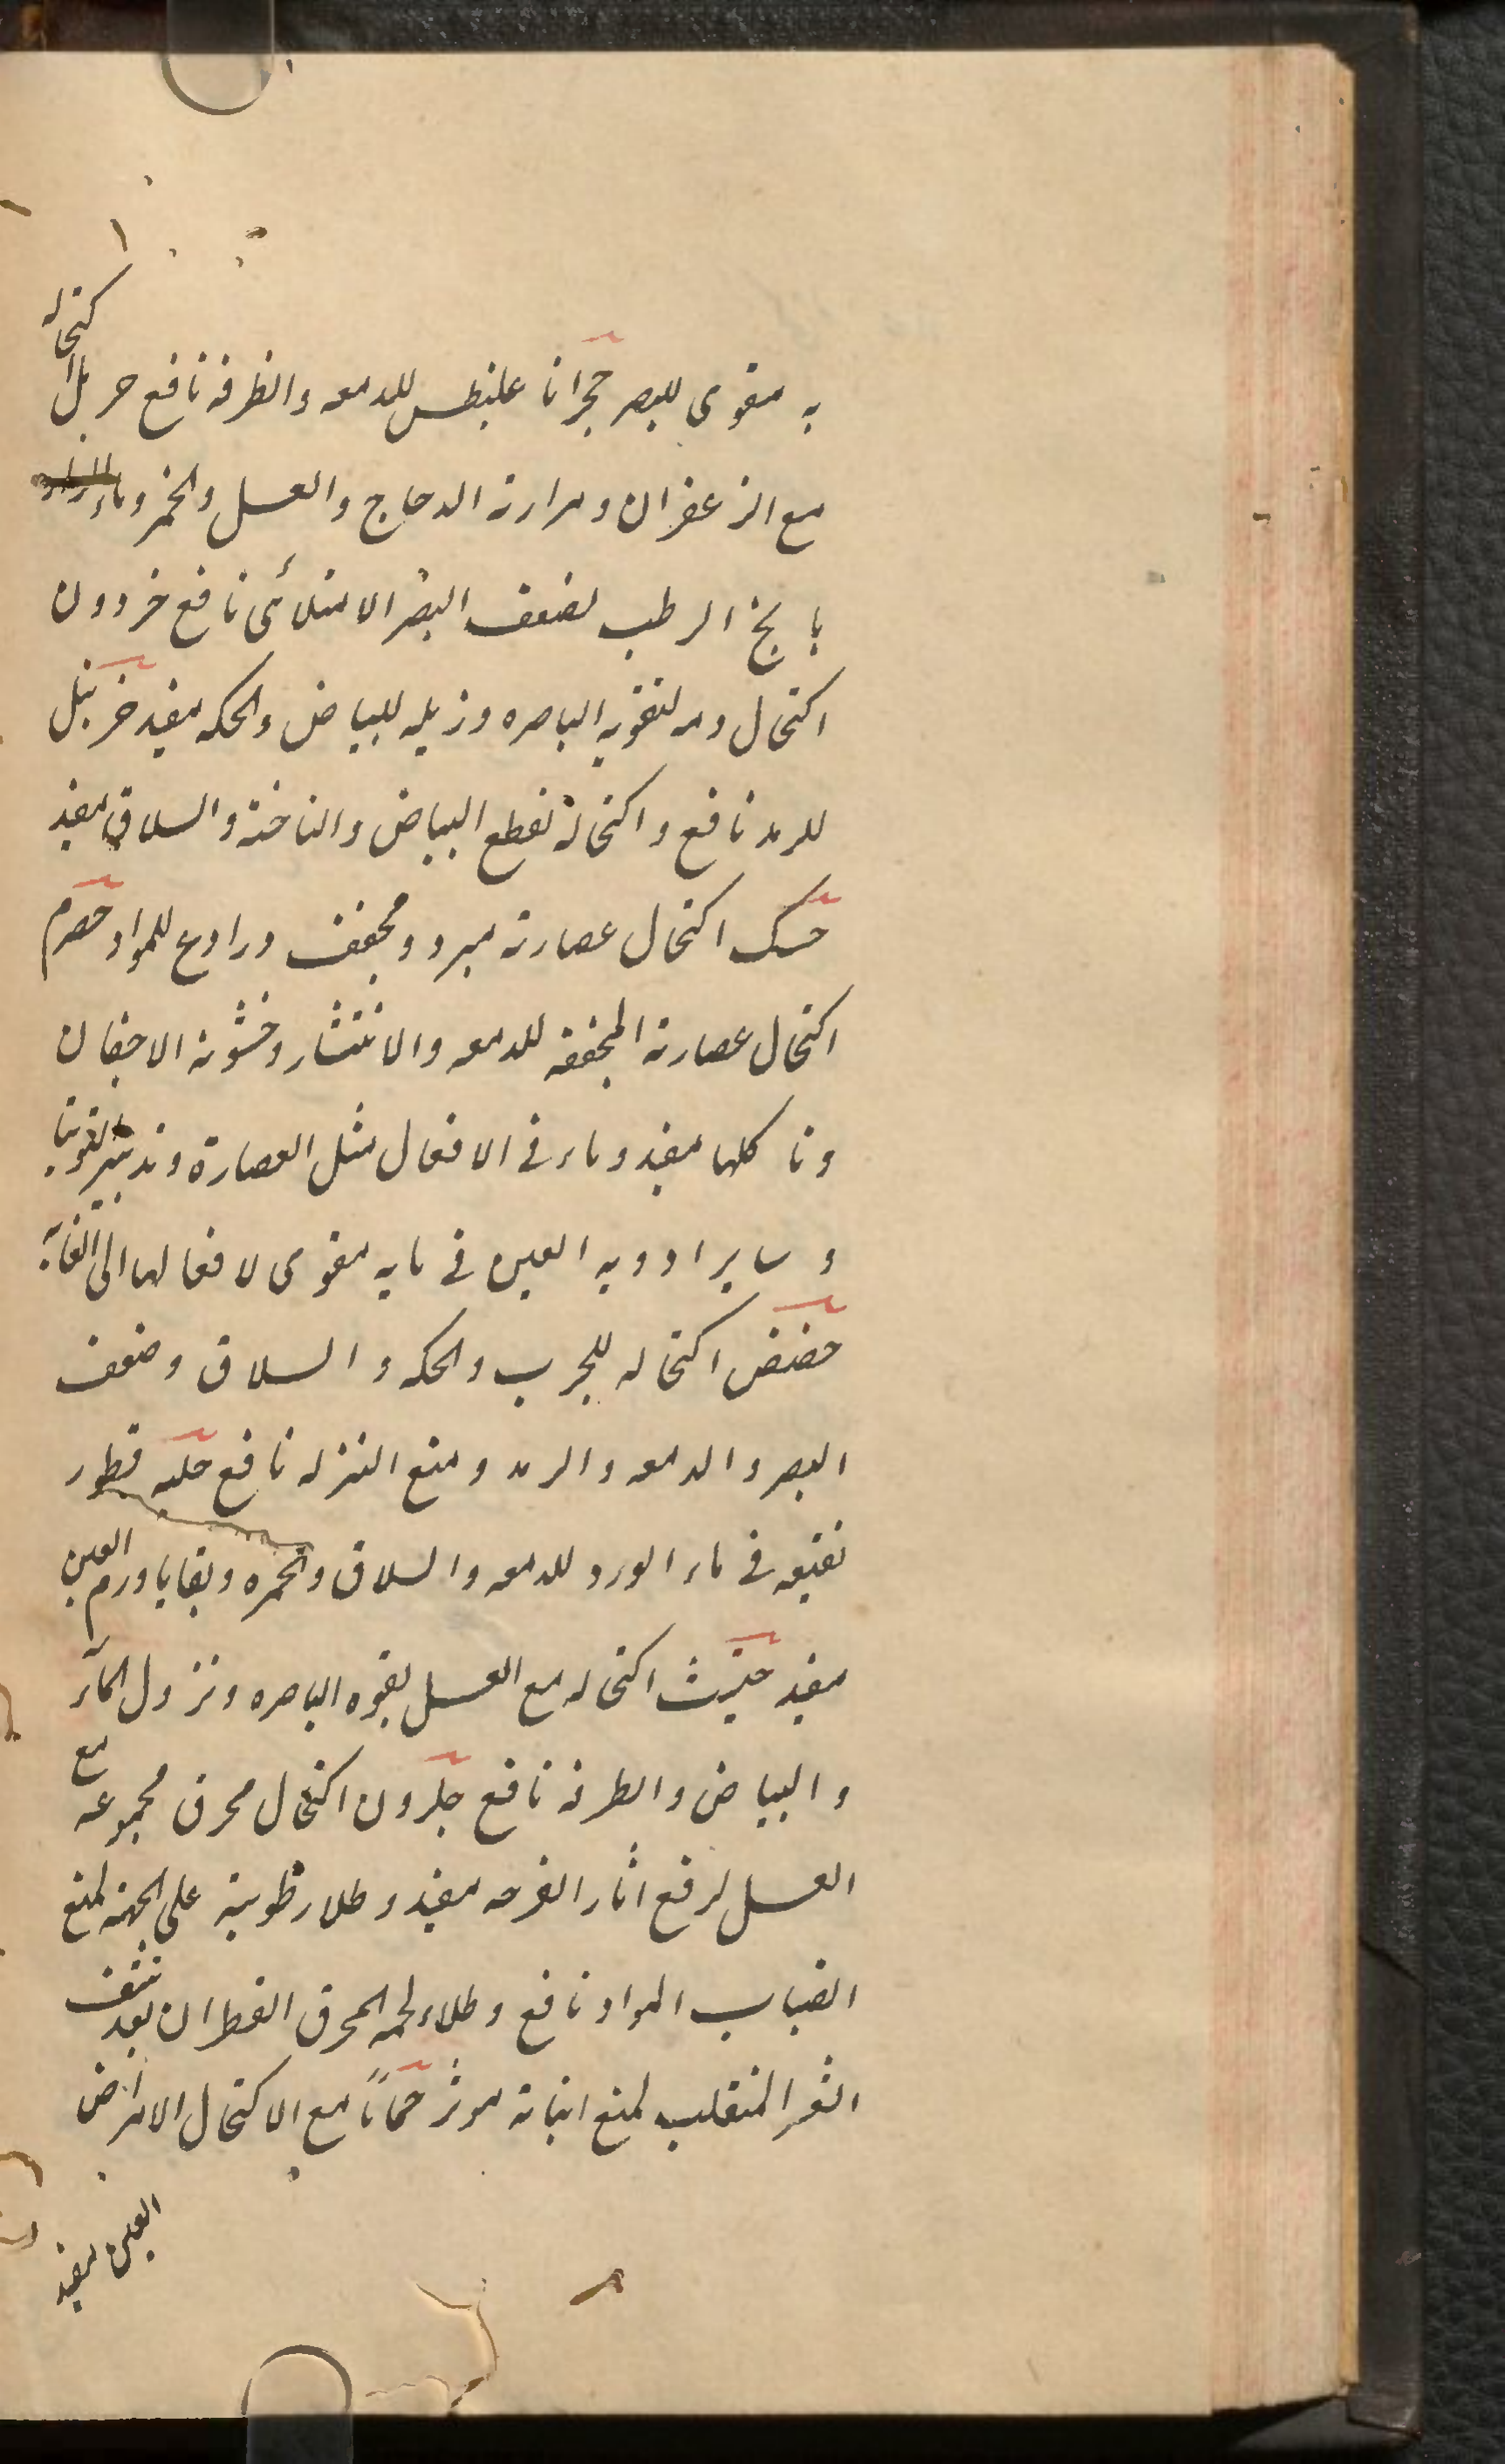 به مقوى للبصر حجر اناغليطس للدمعه والطرفه نافع حرمل اكتحاله
مع الزعفران ومرارة الدجاج والعسل والخمر وماء
الرطب لضعف البصر الامتلائى نافع خردون
اكتحال دمه لتقويه الباصره وزبله للبياض والحكه مفيد خربق
للرمد نافع واكتحاله لقطع البياض والناخنة والسلاق مفيد
حسك اكتحال عصارته مبرد ومجفف ورادع للمواد حصرم
اكتحال عصارته المجففه للدمعه والانتشار وخشونة الاجفان
وتاكلها مفيد وماءه فى الافعال مثل العصارة وتدبير التوتيا
وساير ادويه العين فى مايه مقوى لافعالها الى الغاية
حضض اكتحاله للجرب والحكه والسلاق وضعف
البصر والدمعه والرمد ومنع النزله نافع حلبه قطور
نقيعه فى ماء الورد للدمعه والسلاق والحمره وبقايا ورم العين
مفيد حلتيت اكتحاله مع العسل لقوه الباصره ونزول المآء
والبياض والطرفه نافع حلزون اكتحال محرق مجموعه مع
العسل لرفع اثار القرحه مفيد وطلاء رطوبته على الجبهة لمنع
انصباب المواد نافع وطلاء لحمه المحرق القطران بعد نتف
الشعر المنقلب لمنع انباته موثر حماما مع الاكتحال الامراض
العين مفيد